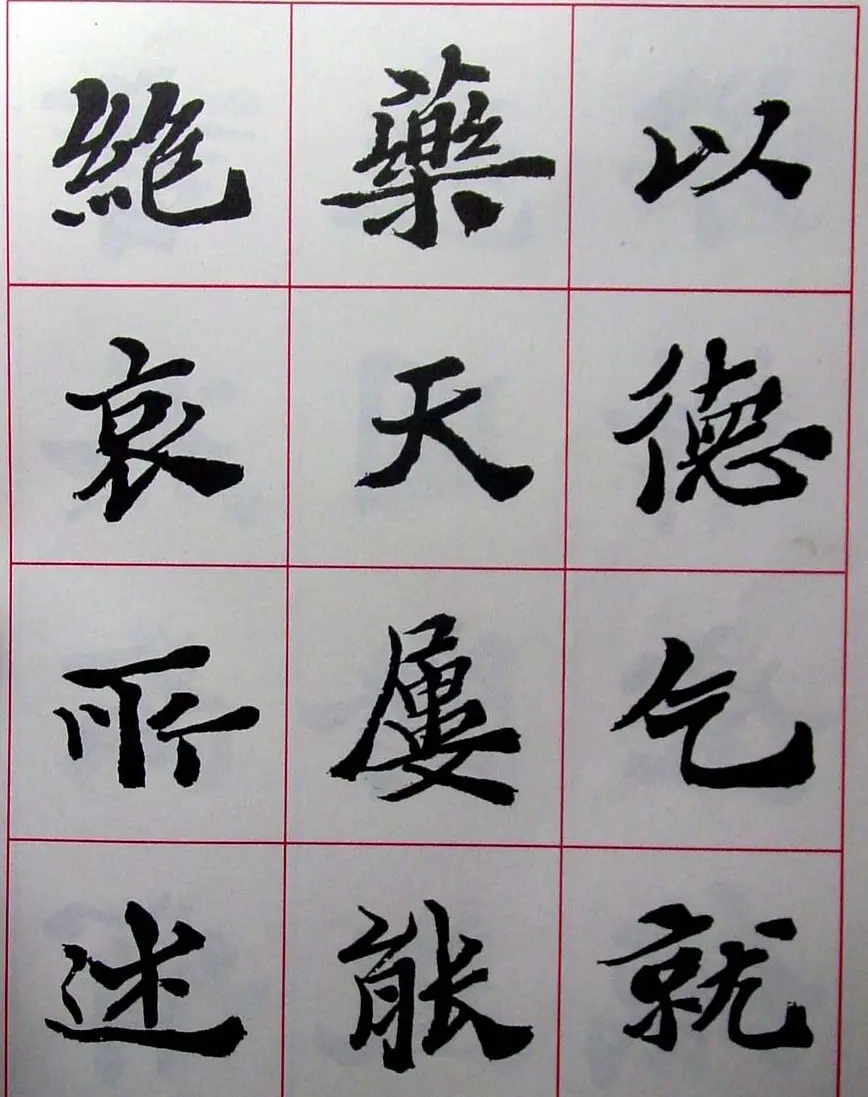 以德乞就
藥天屢能
絕哀所述